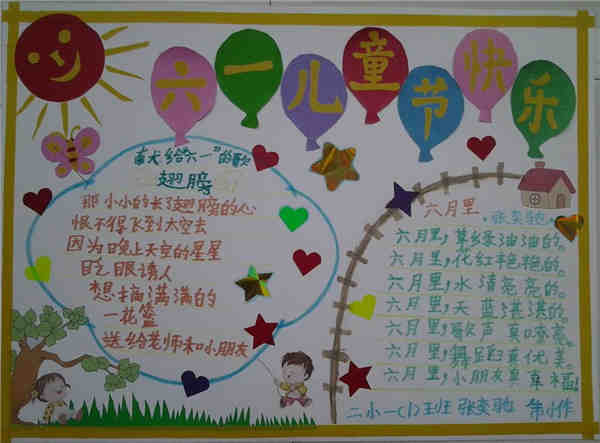 六一儿童节快乐
献给六一"的歌
翅膀
那小小的长了翅膀的心
恨不得飞到太空去
因为晚上天空的星星
眨眼请人
想摘满满的
一花篮
送给老师和小朋友
六月里
张奕驰
六月里,草绿油油的。
六月里,花红艳艳的。
六月里,水清亮亮的。
六月里,天蓝湛湛的。
六月里,歌声真嘹亮。
六月里,舞蹈真优美。
六月里,小朋友真幸福!
二小一(1)班 张奕驰 制作